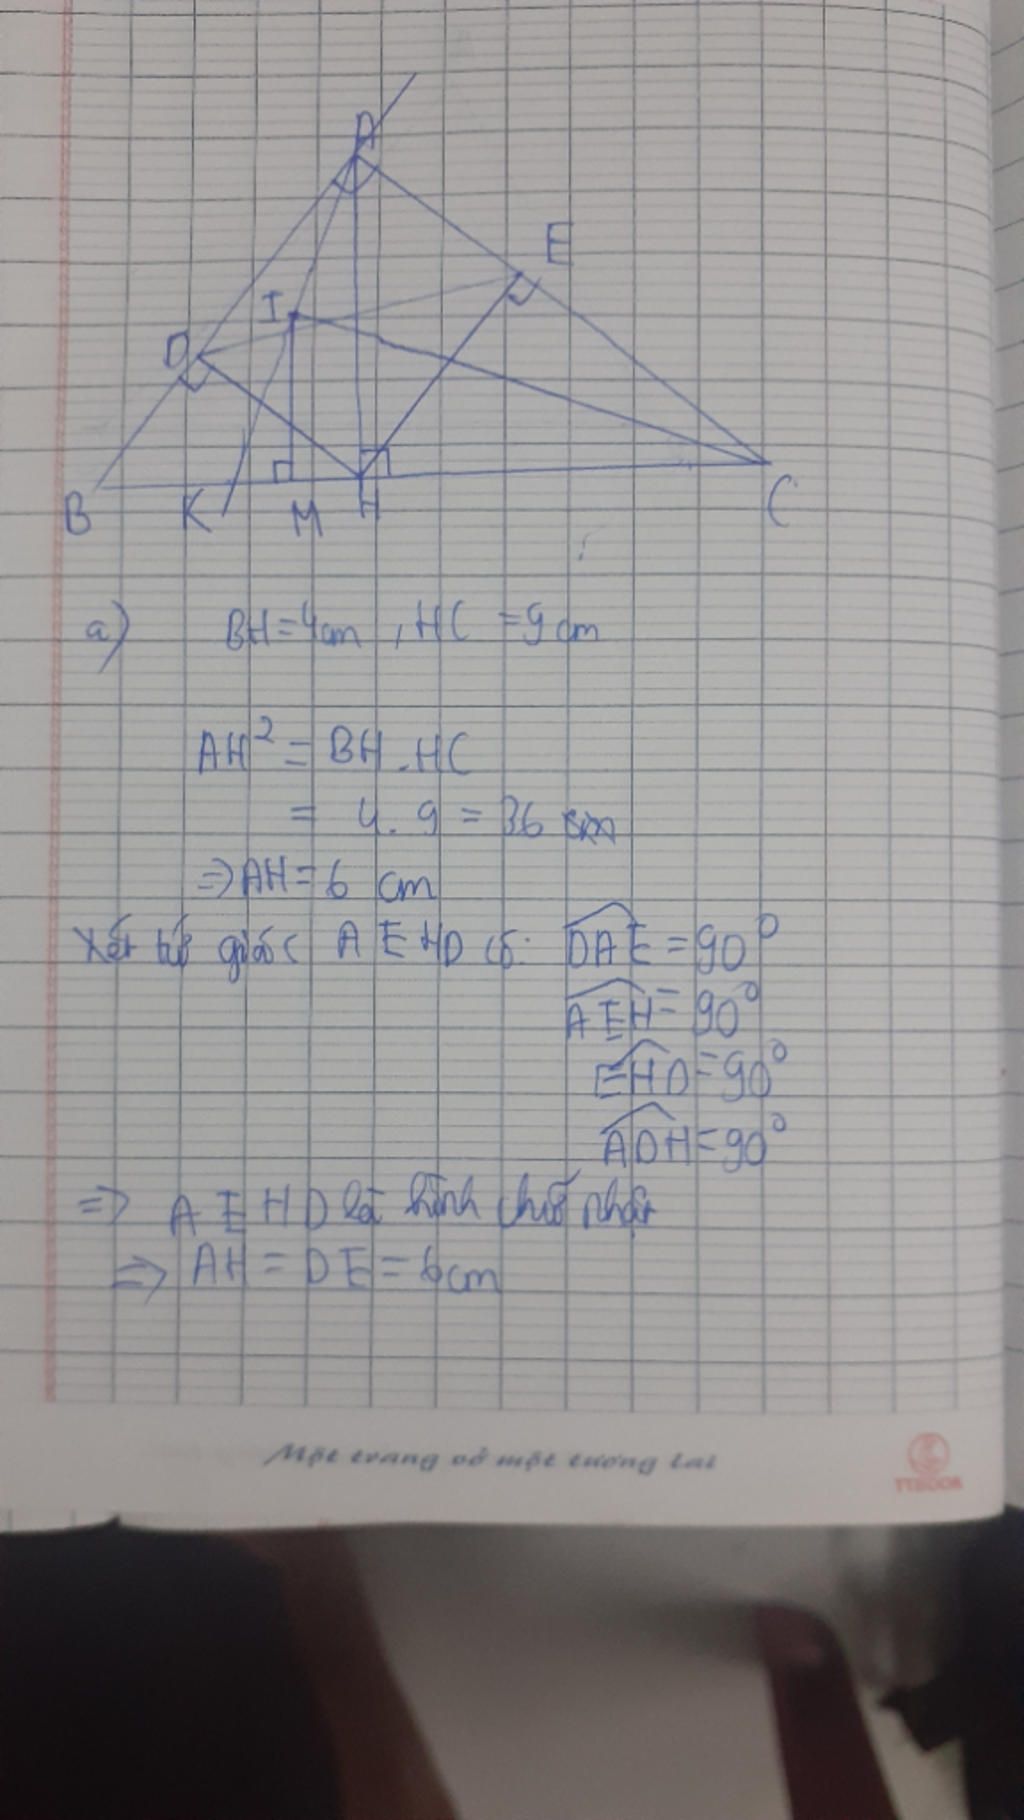 A
E
I
D
B K M H C
a) BH = 4cm, HC = 9cm
AH² = BH.HC
= 4.9 = 36
=> AH = 6 cm
Xét tứ giác AEHD có: DAE = 90°
AEH = 90°
EHD = 90°
ADH = 90°
=> AEHD là hình chữ nhật
=> AH = DE = 6cm
Một trang vở một tương lai
TTBOOK